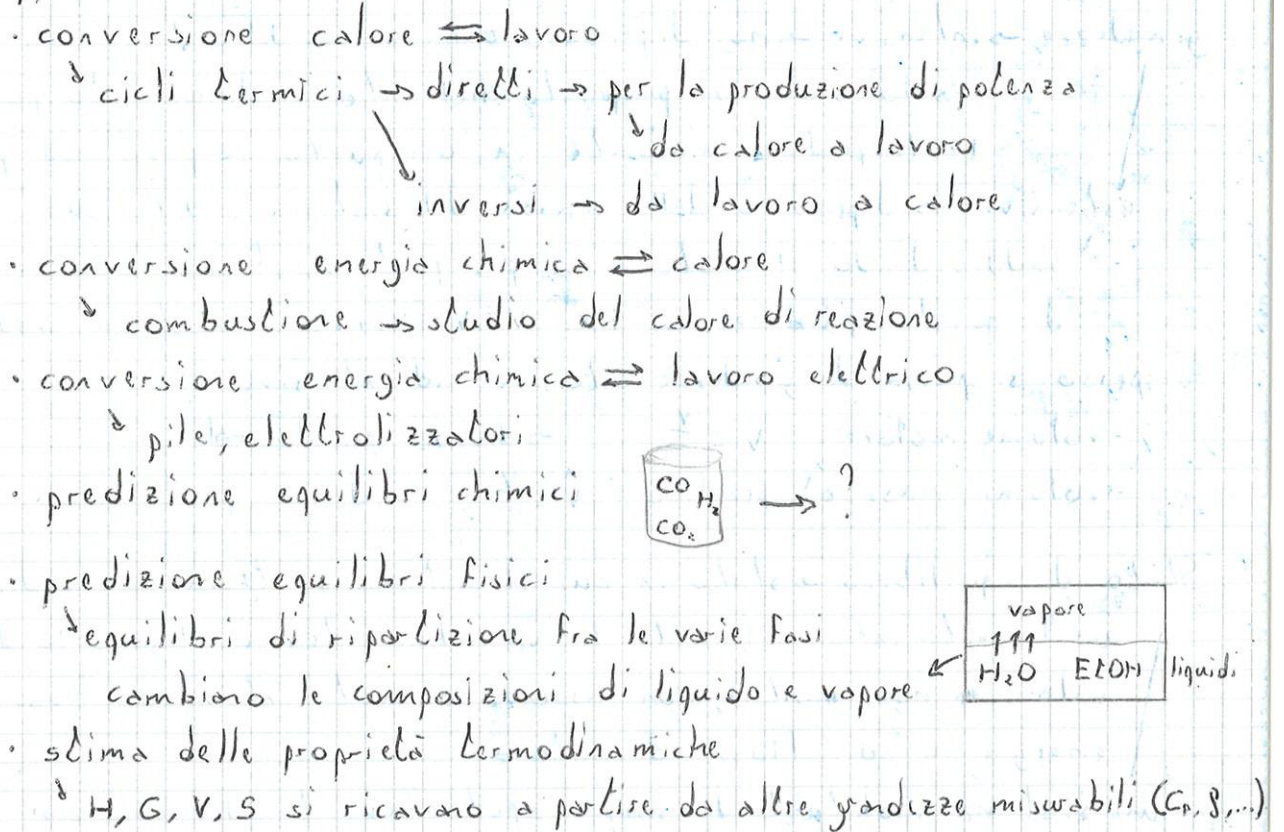 · conversione calore ⇆ lavoro
↳ cicli termici → diretti → per la produzione di potenza
↳ da calore a lavoro
inversi → da lavoro a calore
· conversione energia chimica ⇄ calore
↳ combustione → studio del calore di reazione
· conversione energia chimica ⇄ lavoro elettrico
↳ pile, elettrolizzatori
· predizione equilibri chimici CO H₂ CO₂ → ?
· predizione equilibri fisici
vapore
↳ equilibri di ripartizione fra le varie fasi ↑↑↑
H₂O EtOH liquidi
cambiano le composizioni di liquido e vapore
· stima delle proprietà termodinamiche
↳ H, G, V, S si ricavano a partire da altre grandezze misurabili (Cp, ρ,...)